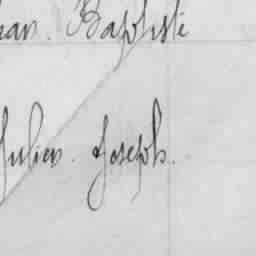 Jean. Baptiste
Julien. Joseph.